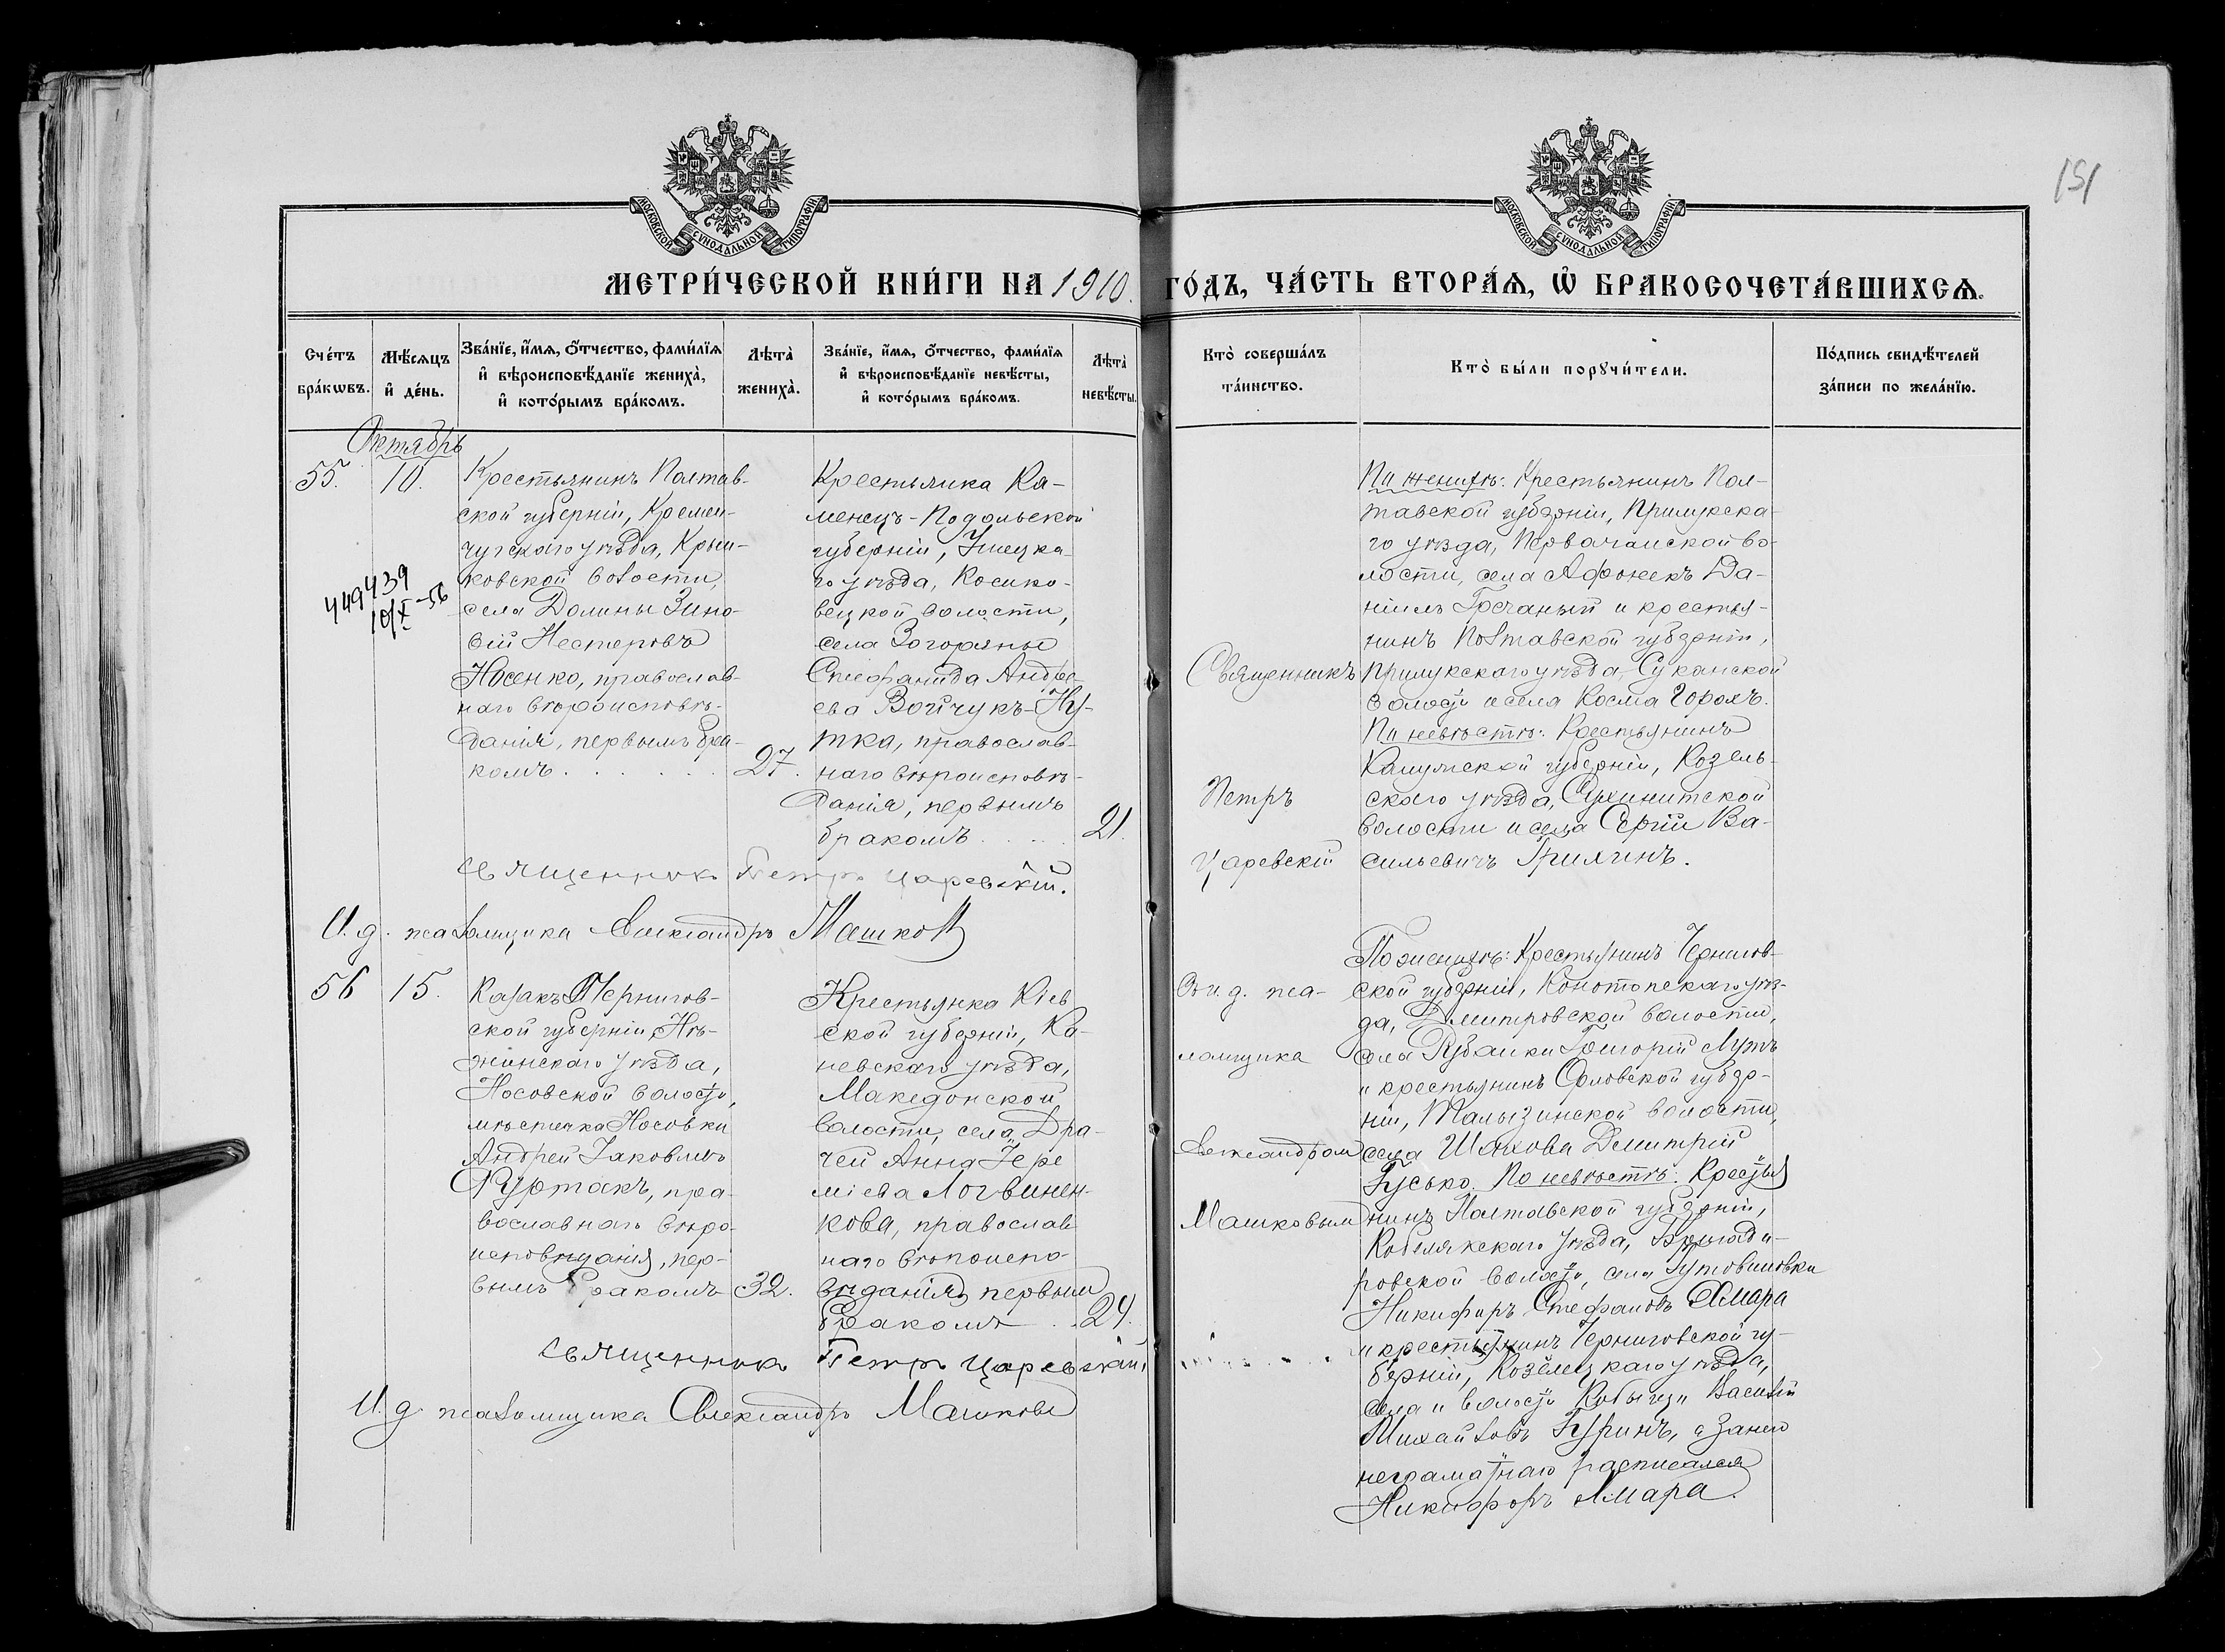 151
МОСКОВСКОЙ СѴНОДАЛЬНОЙ ТИПОГРАФІИ
МОСКОВСКОЙ СѴНОДАЛЬНОЙ ТИПОГРАФІИ
МЕТРИ́ЧЕСКОЙ КНИ́ГИ НА 1910. ГО́ДЪ, ЧА́СТЬ ВТОРА́Ѧ, Ѡ҆ БРАКОСОЧЕТА́ВШИХСѦ.
Сче́тъ бра́кѡвъ.
Мѣ́сѧцъ и҆ де́нь.
Зва́нїе, и҆́мѧ, ѻ҆́тчество, фами́лїѧ и҆ вѣроисповѣ́данїе жениха̀, и҆ кото́рымъ бра́комъ.
Лѣта̀ жениха̀.
Зва́нїе, и҆́мѧ, ѻ҆́тчество, фами́лїѧ и҆ вѣроисповѣ́данїе невѣ́сты, и҆ кото́рымъ бра́комъ.
Лѣта̀ невѣ́сты.
Кто̀ соверша́лъ та́инство.
Кто̀ бы́ли порꙋчи́тели.
По́дпись свидѣ́телей за́писи по жела́нїю.
Октябрь
55.
10.
449439
10/X-56
Крестьянинъ Полтав-
ской губерніи, Кремен-
чугскаго уѣзда, Крыш-
ковской волости,
села Долины Зино-
вій Нестеровъ
Носенко, православ-
наго вѣроисповѣ-
данія, первымъ бра-
комъ . . . . . .
27.
Крестьянка Ка-
менецъ-Подольской
губерніи, Ушецка-
го уѣзда, Косико-
вецкой волости,
села Загоряны
Стефанида Андре-
ева Войчукъ-Ну-
тка, православ-
наго вѣроисповѣ-
данія, первымъ
бракомъ . . . .
21.
Священникъ
Петръ
Царевскій
По женихѣ: Крестьянинъ Пол-
тавской губерніи, Прилукска-
го уѣзда, волости, села Афонекъ Да-
ніилъ Гречаный и крестья-
нинъ Полтавской губерніи,
Прилукскаго уѣзда,
волости и села Косма Горохъ.
По невѣстѣ: Крестьянинъ
Калужской губерніи, Козель-
скаго уѣзда, Сухинитской
волости и села Сергій Ва-
сильевичъ Грихинъ.
Священникъ Петръ Царевскій.
И. д. псаломщика Александръ Машковъ
56
15.
Казакъ Чернигов-
ской губерніи, Нѣ-
жинскаго уѣзда,
Носовской волости,
мѣстечка Носовки
Андрей Іаковлевъ
Фуртакъ, пра-
вославнаго вѣро-
исповѣданія, пер-
вымъ бракомъ
32.
Крестьянка Кіев
ской губерніи, Ка-
невскаго уѣзда,
Македонской
волости, села Дра-
чей Анна Іере
міева Логвинен-
кова, православ
наго вѣроиспо-
вѣданія, первымъ
бракомъ . .
24.
Съ и. д. пса-
ломщика
Александромъ
Машковымъ
По женихѣ: Крестьянинъ Чернигов-
ской губерніи, Конотопскаго уѣз-
да, Дмитровской волости,
села Рубанки Григорій Лутъ
и крестьянинъ Орловской губер-
ніи, Талызинской волости,
села Шахова Димитрій
Гусько. По невѣстѣ: Крестья
нинъ Полтавской губерніи,
Кобелякскаго уѣзда, Бригади-
ровской волости, села
Никифоръ Стефановъ Хмара
и крестьянинъ Черниговской гу-
берніи, Козелецкаго уѣзда,
села и волости Кобыжчи Василій
Михайловъ Куринъ, а за него
неграматнаго расписался
Никифоръ Хмара.
Священникъ Петръ Царевскій.
И. д. псаломщика Александръ Машковъ